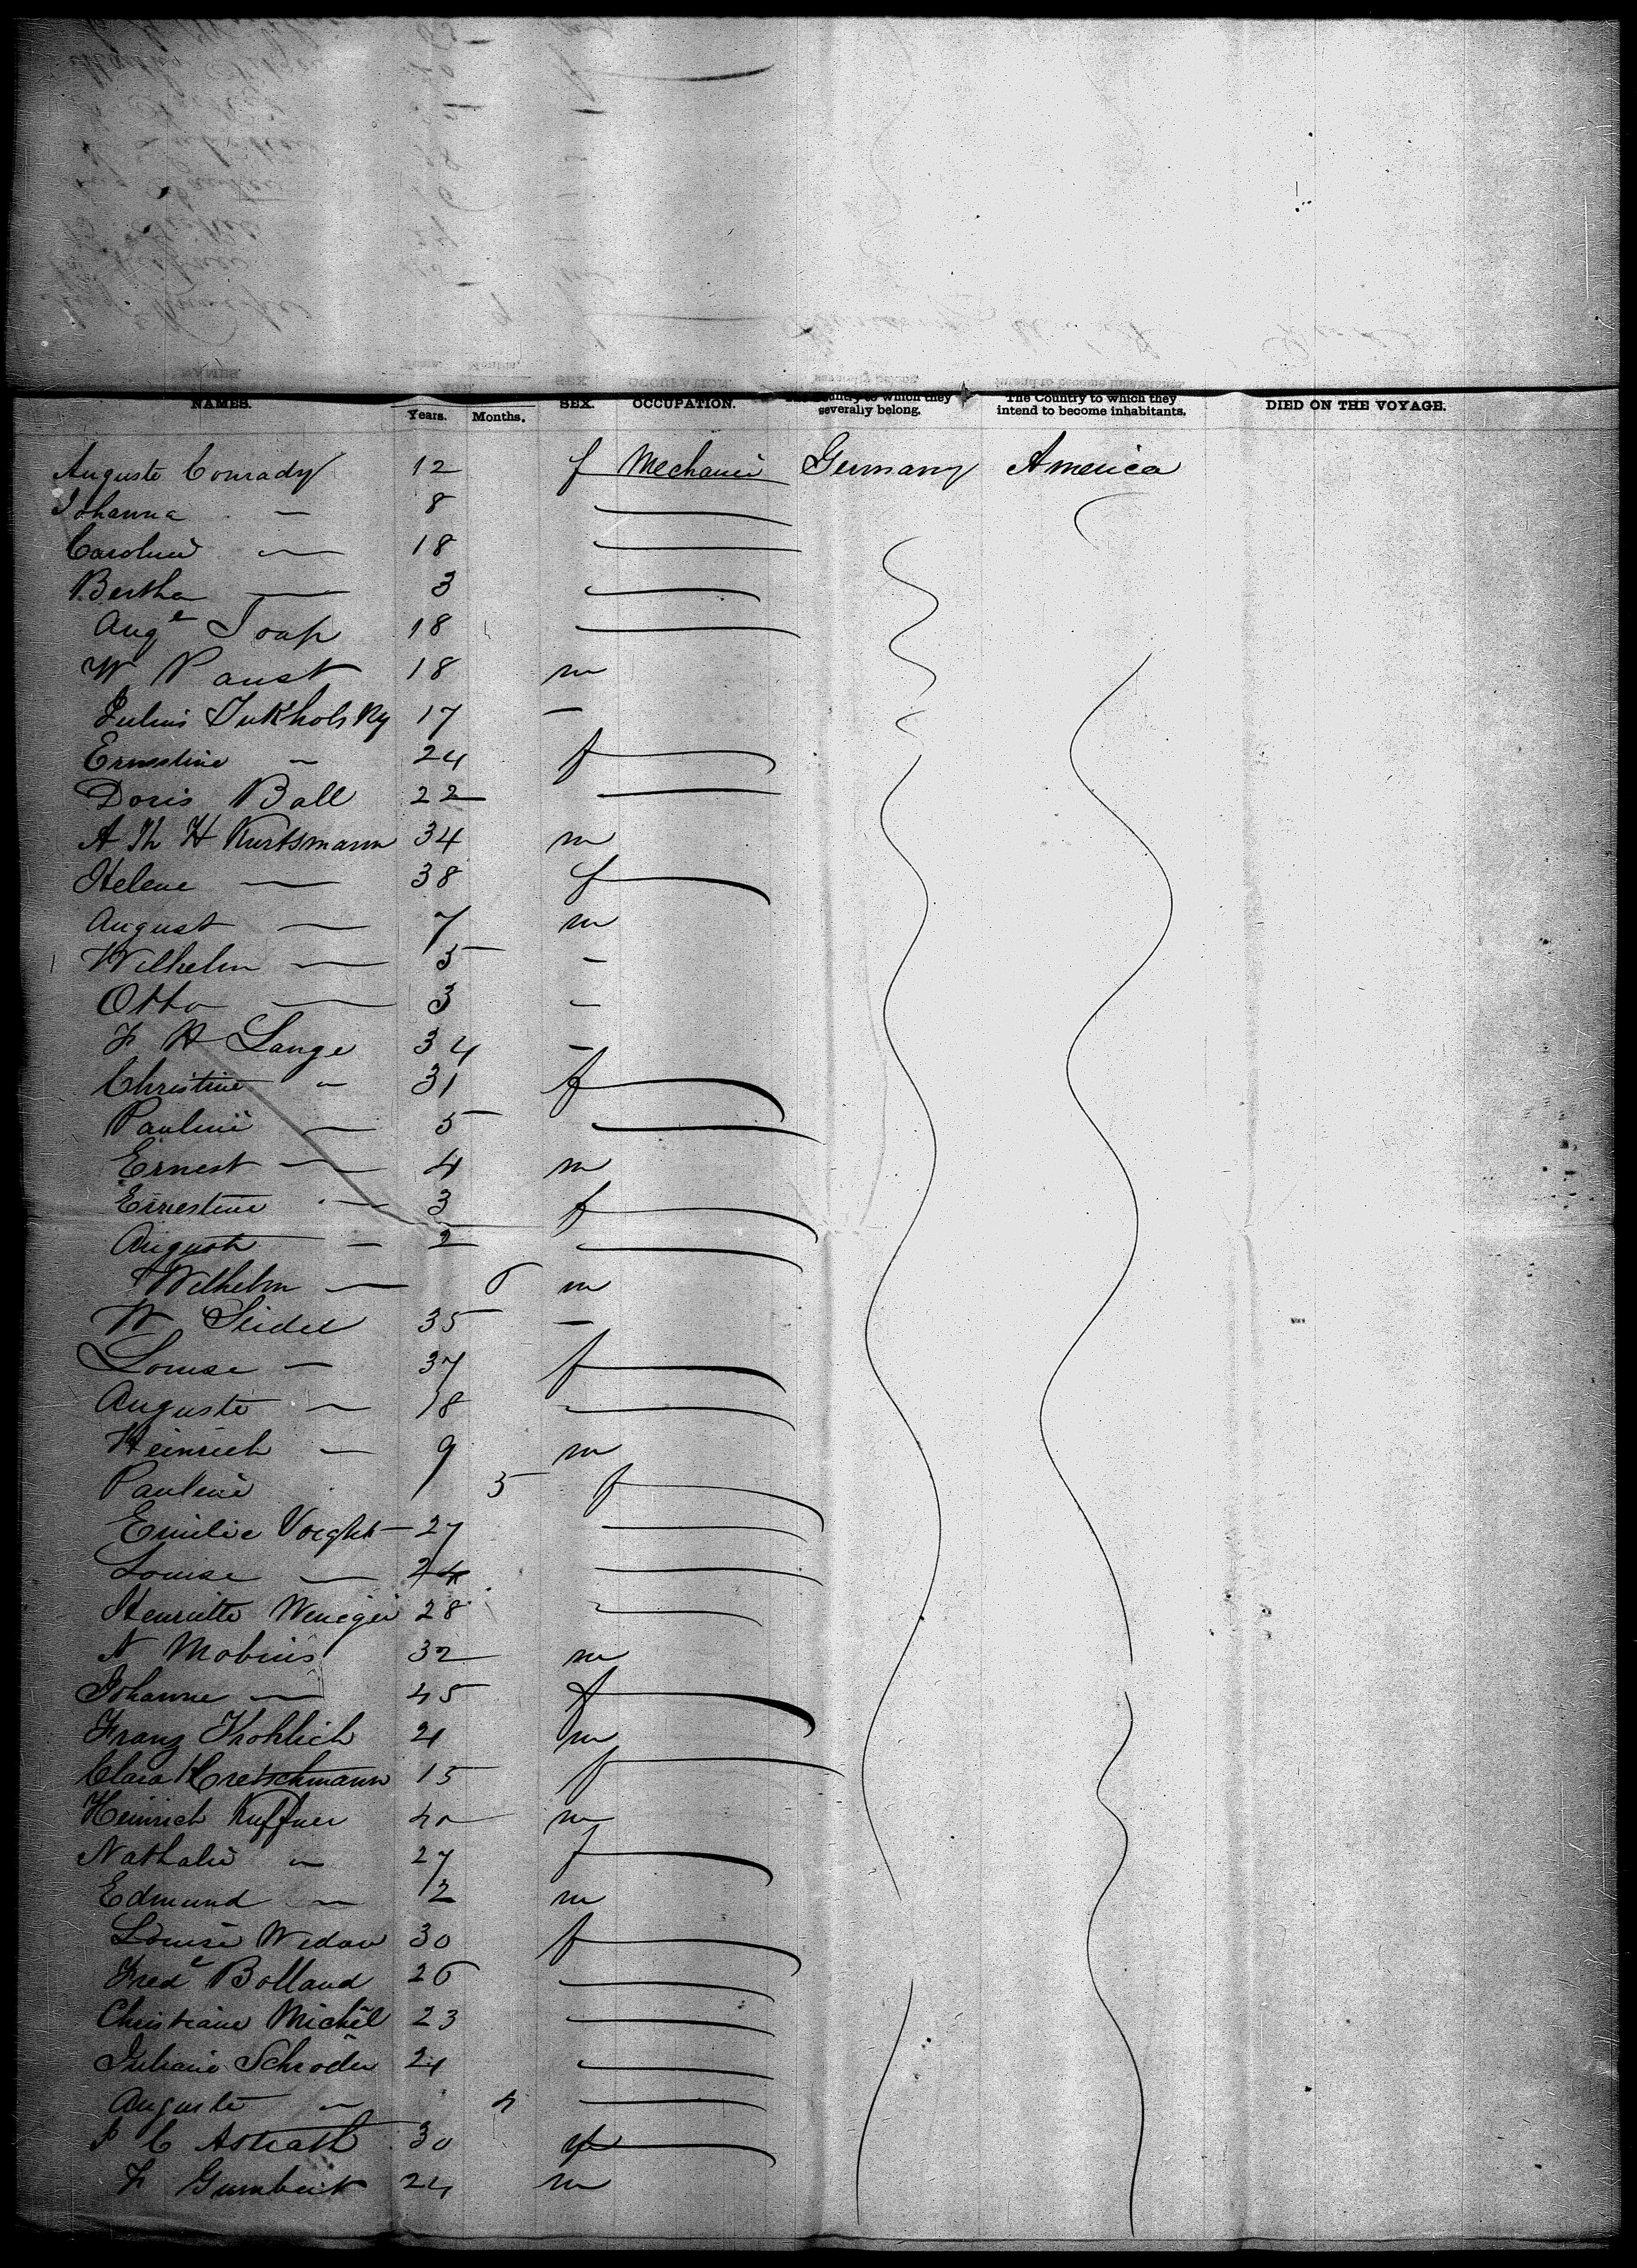 NAMES. Years. Months. SEX. OCCUPATION. Country to which they severally belong. The Country to which they intend to become inhabitants. DIED ON THE VOYAGE.
Auguste Conrady 12 f Mechanic Germany America
Johanna — 8 —
Caroline — 18 —
Bertha — 3 —
Aug^e Soap 18 —
W Paust 18 m
Julius Tukholsky 17 —
Ernestine — 24 f
Doris Ball 22 —
A Th H Kurtsmann 34 m
Helene — 38 f
August — 7 m
Wilhelm — 5 —
Otto — 3 —
F H Lange 34 —
Christine " 31 f
Pauline — 5 —
Ernest — 4 m
Ernestine — 3 f
Auguste — 2 —
Wilhelm — 6 m
W Seidel 35 —
Louise — 37 f
Auguste — 18 —
Heinrich — 9 m
Pauline 5 f
Emilie Voight — 27 —
Louise — 24 —
Henriette Weneger 28 —
A Mobius 32 m
Johanne — 45 f
Franz Frohlich 21 m
Clara Kretschmann 15 f
Heinrich Kuffner 40 m
Nathalie " 27 f
Edmund — 2 m
Louise Wedau 30 f
Fred^e Bolland 26 —
Christiane Michel 23 —
Juliane Schroder 24 —
Auguste " 4 —
C 30 f
F 24 m